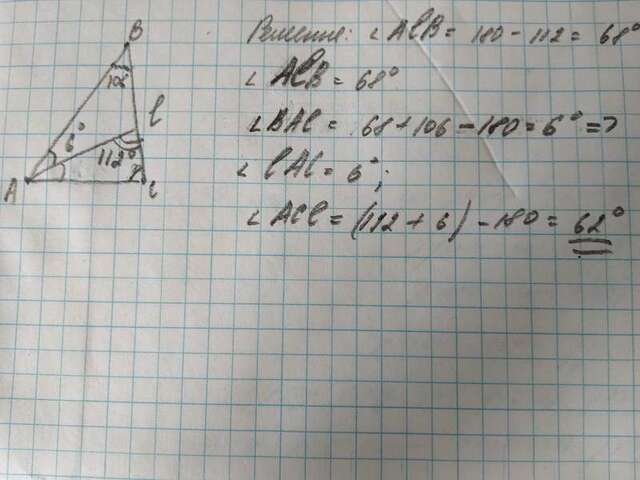 B
l
6°
112°
A
C
Решение: ∠ AlB = 180 - 112 = 68°
∠ AlB = 68°
∠ BAl = 68 + 106 - 180 = 6° =>
∠ lAC = 6°;
∠ ACl = (112 + 6) - 180 = 62°